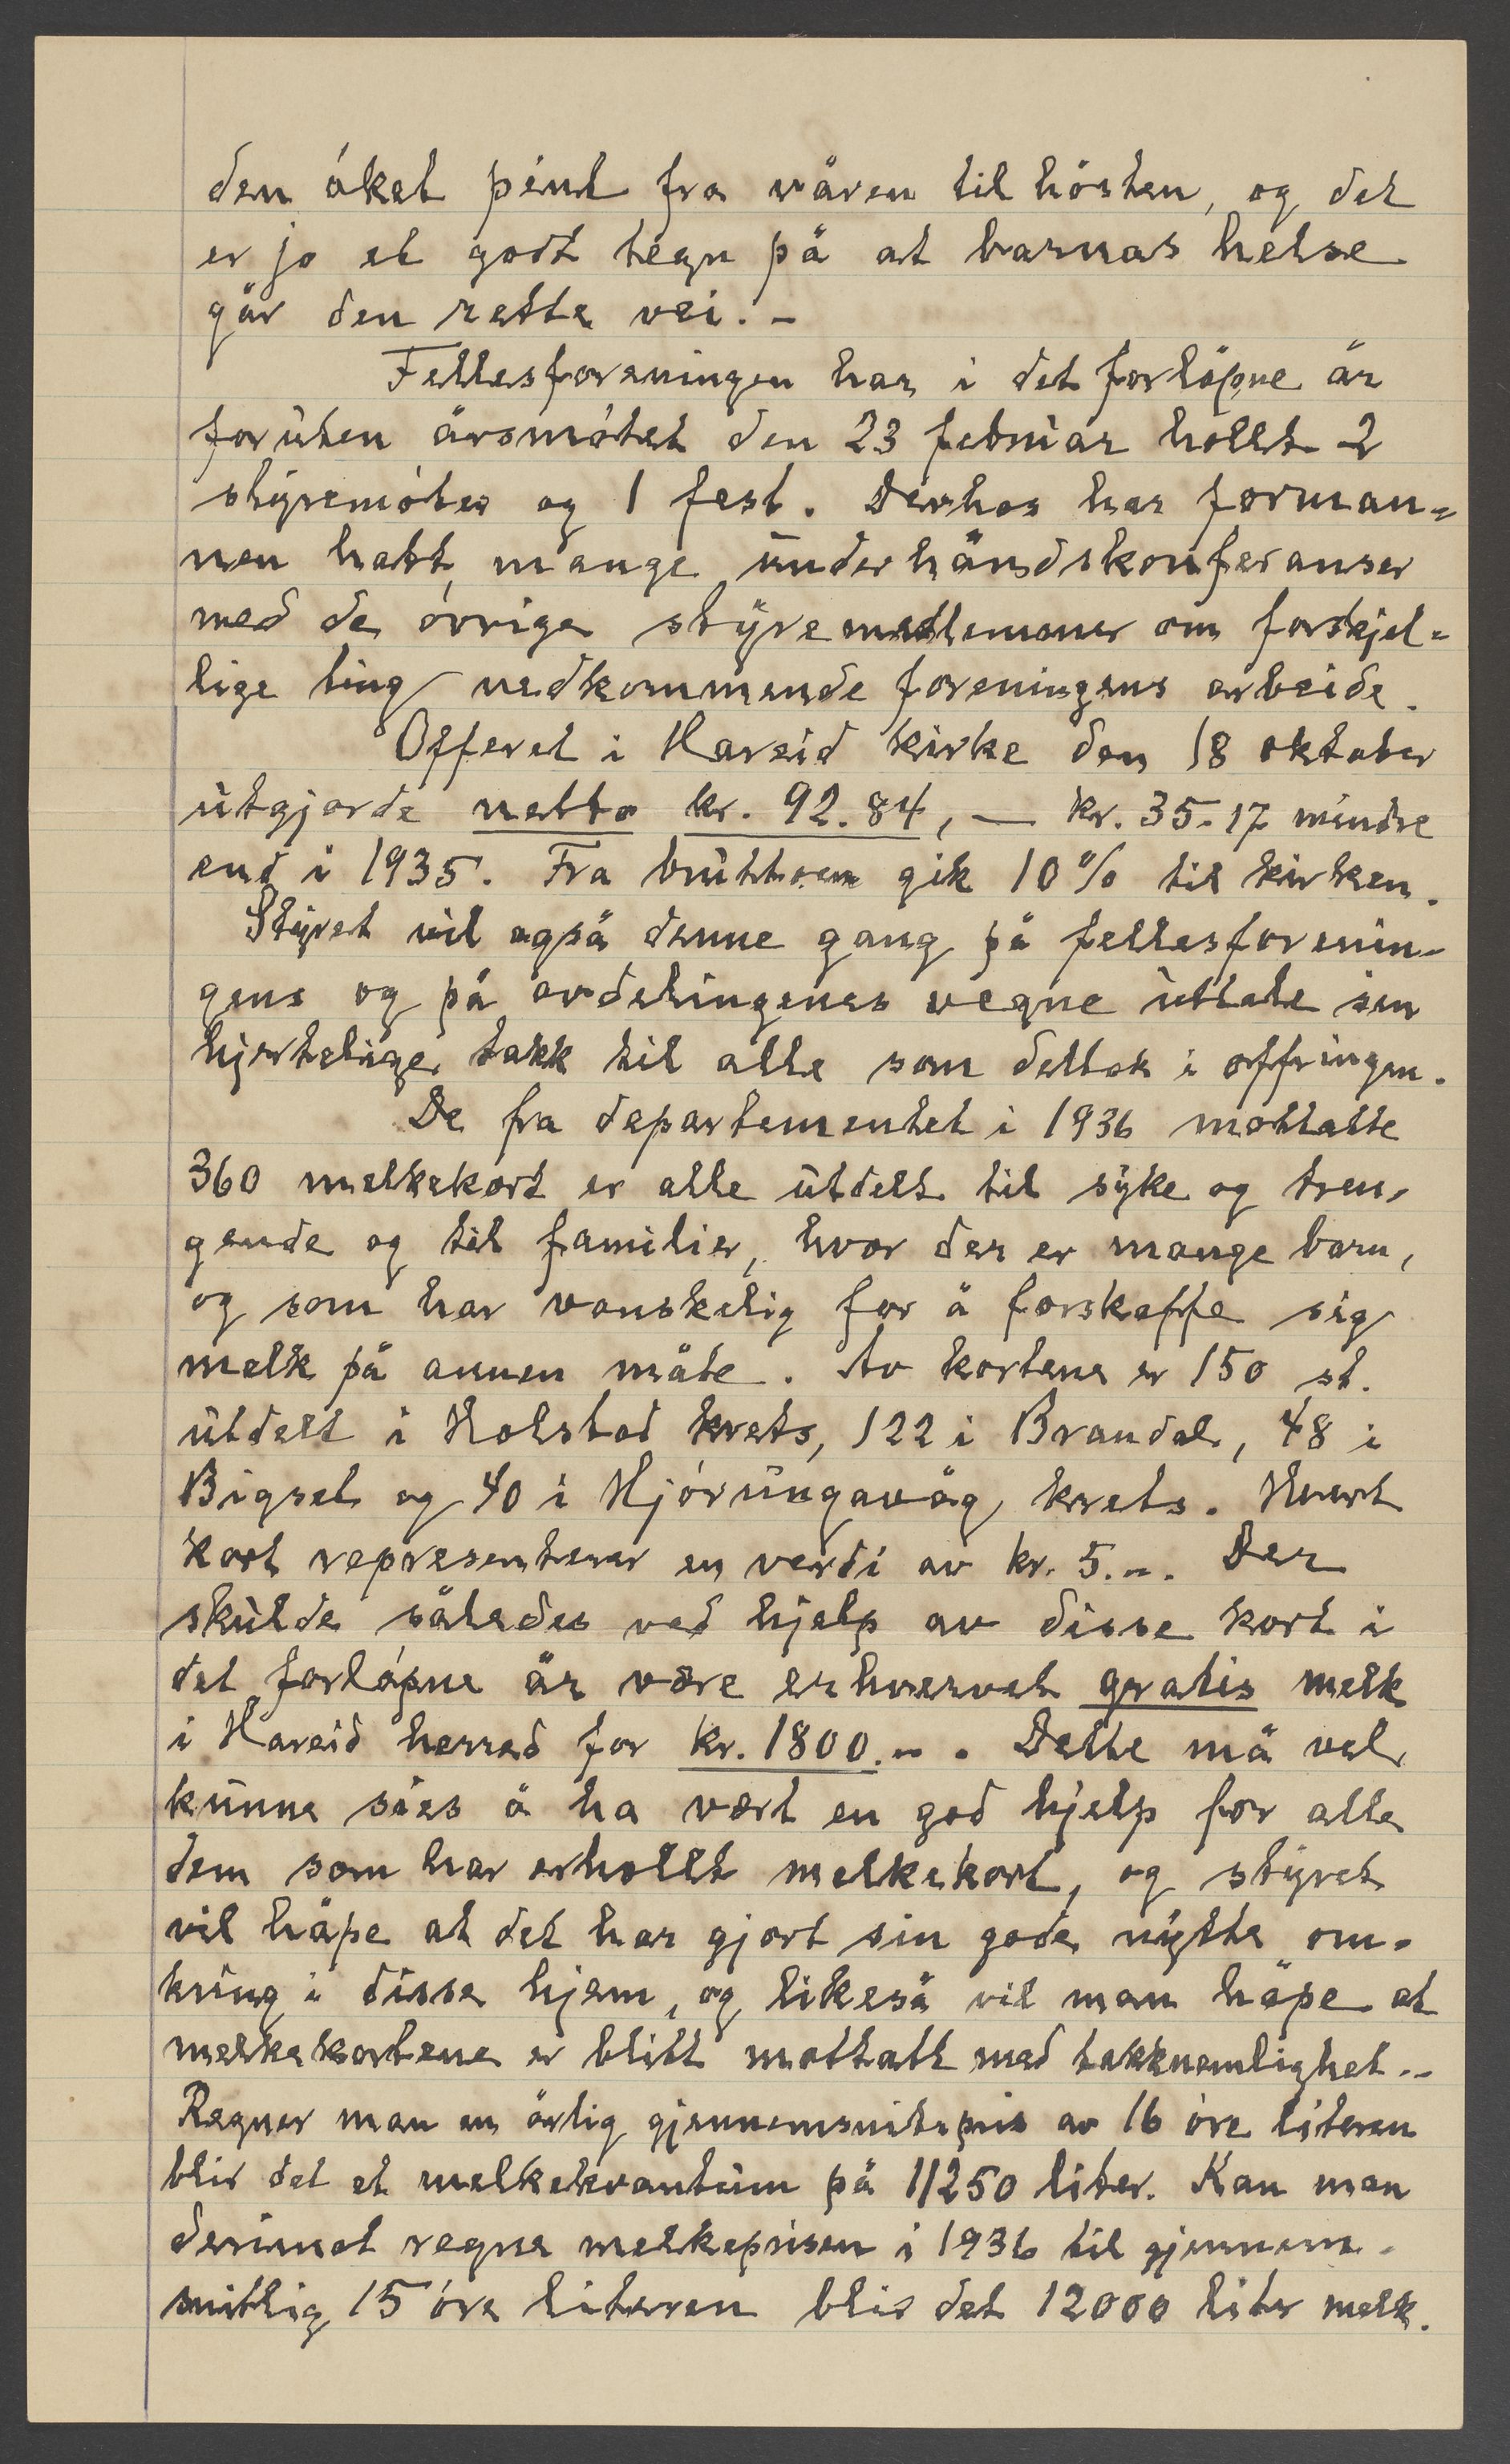 den øket pent fra våren til høsten, og det
er jo et godt tegn på at barnas helse
går den rette vei. –
Fellesforeningen har i det forløpne år
foruten årsmøtet den 23 februar holdt 2
styremøter og 1 fest. Derhos har forman-
nen hatt mange underhåndskonferanser
med de øvrige styremedlemmer om forskjel-
lige ting vedkommende foreningens arbeide.
Offeret i Hareid kirke den 18 oktober
utgjorde netto kr. 92.84, — kr. 35.17 mindre
end i 1935. Fra bruttoen gik 10% til kirken.
Styret vil også denne gang på fellesforenin-
gens og på avdelingenes vegne uttale sin
hjertelige takk til alle som deltok i offringen.
De fra departementet i 1936 mottatte
360 melkekort er alle utdelt til syke og tren-
gende og til familier, hvor der er mange barn,
og som har vanskelig for å forskaffe sig
melk på annen måte. Av kortene er 150 st.
utdelt i Holstad krets, 122 i Brandal, 48 i
Bigset og 40 i Hjørungavåg krets. Hvert
kort representerer en verdi av kr. 5.–. Der
skulde således ved hjelp av disse kort i
det forløpne år være erhvervet gratis melk
i Hareid herred for kr. 1800.–. Dette må vel
kunne sies å ha vært en god hjelp for alle
dem som har erholdt melkekort, og styret
vil håpe at det har gjort sin gode nytte om-
kring i disse hjem, og likeså vil man håpe at
melkekortene er blitt mottatt med takknemlighet. –
Regner man en årlig gjennemsnitspris av 16 øre literen
blir det et melkekvantum på 11250 liter. Kan man
derimot regne melkeprisen i 1936 til gjennem-
snitlig 15 øre literen blir det 12000 liter melk.